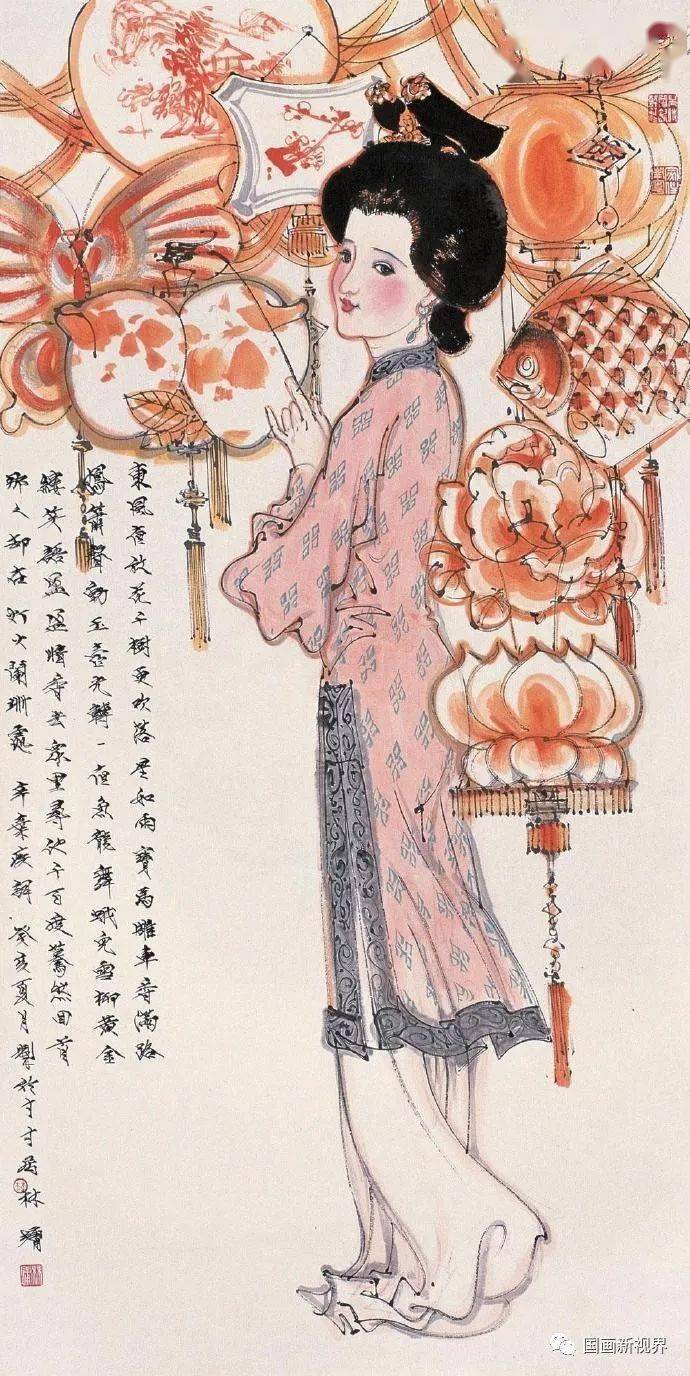 東風夜放花千樹更吹落星如雨寶馬雕車香滿路
鳳簫聲動玉壺光轉一夜魚龍舞蛾兒雪柳黃金
縷笑語盈盈暗香去衆里尋他千百度驀然回首
那人却在灯火闌珊處 辛棄疾詞 癸亥夏月 於寸寸居 林墉
国画新视界